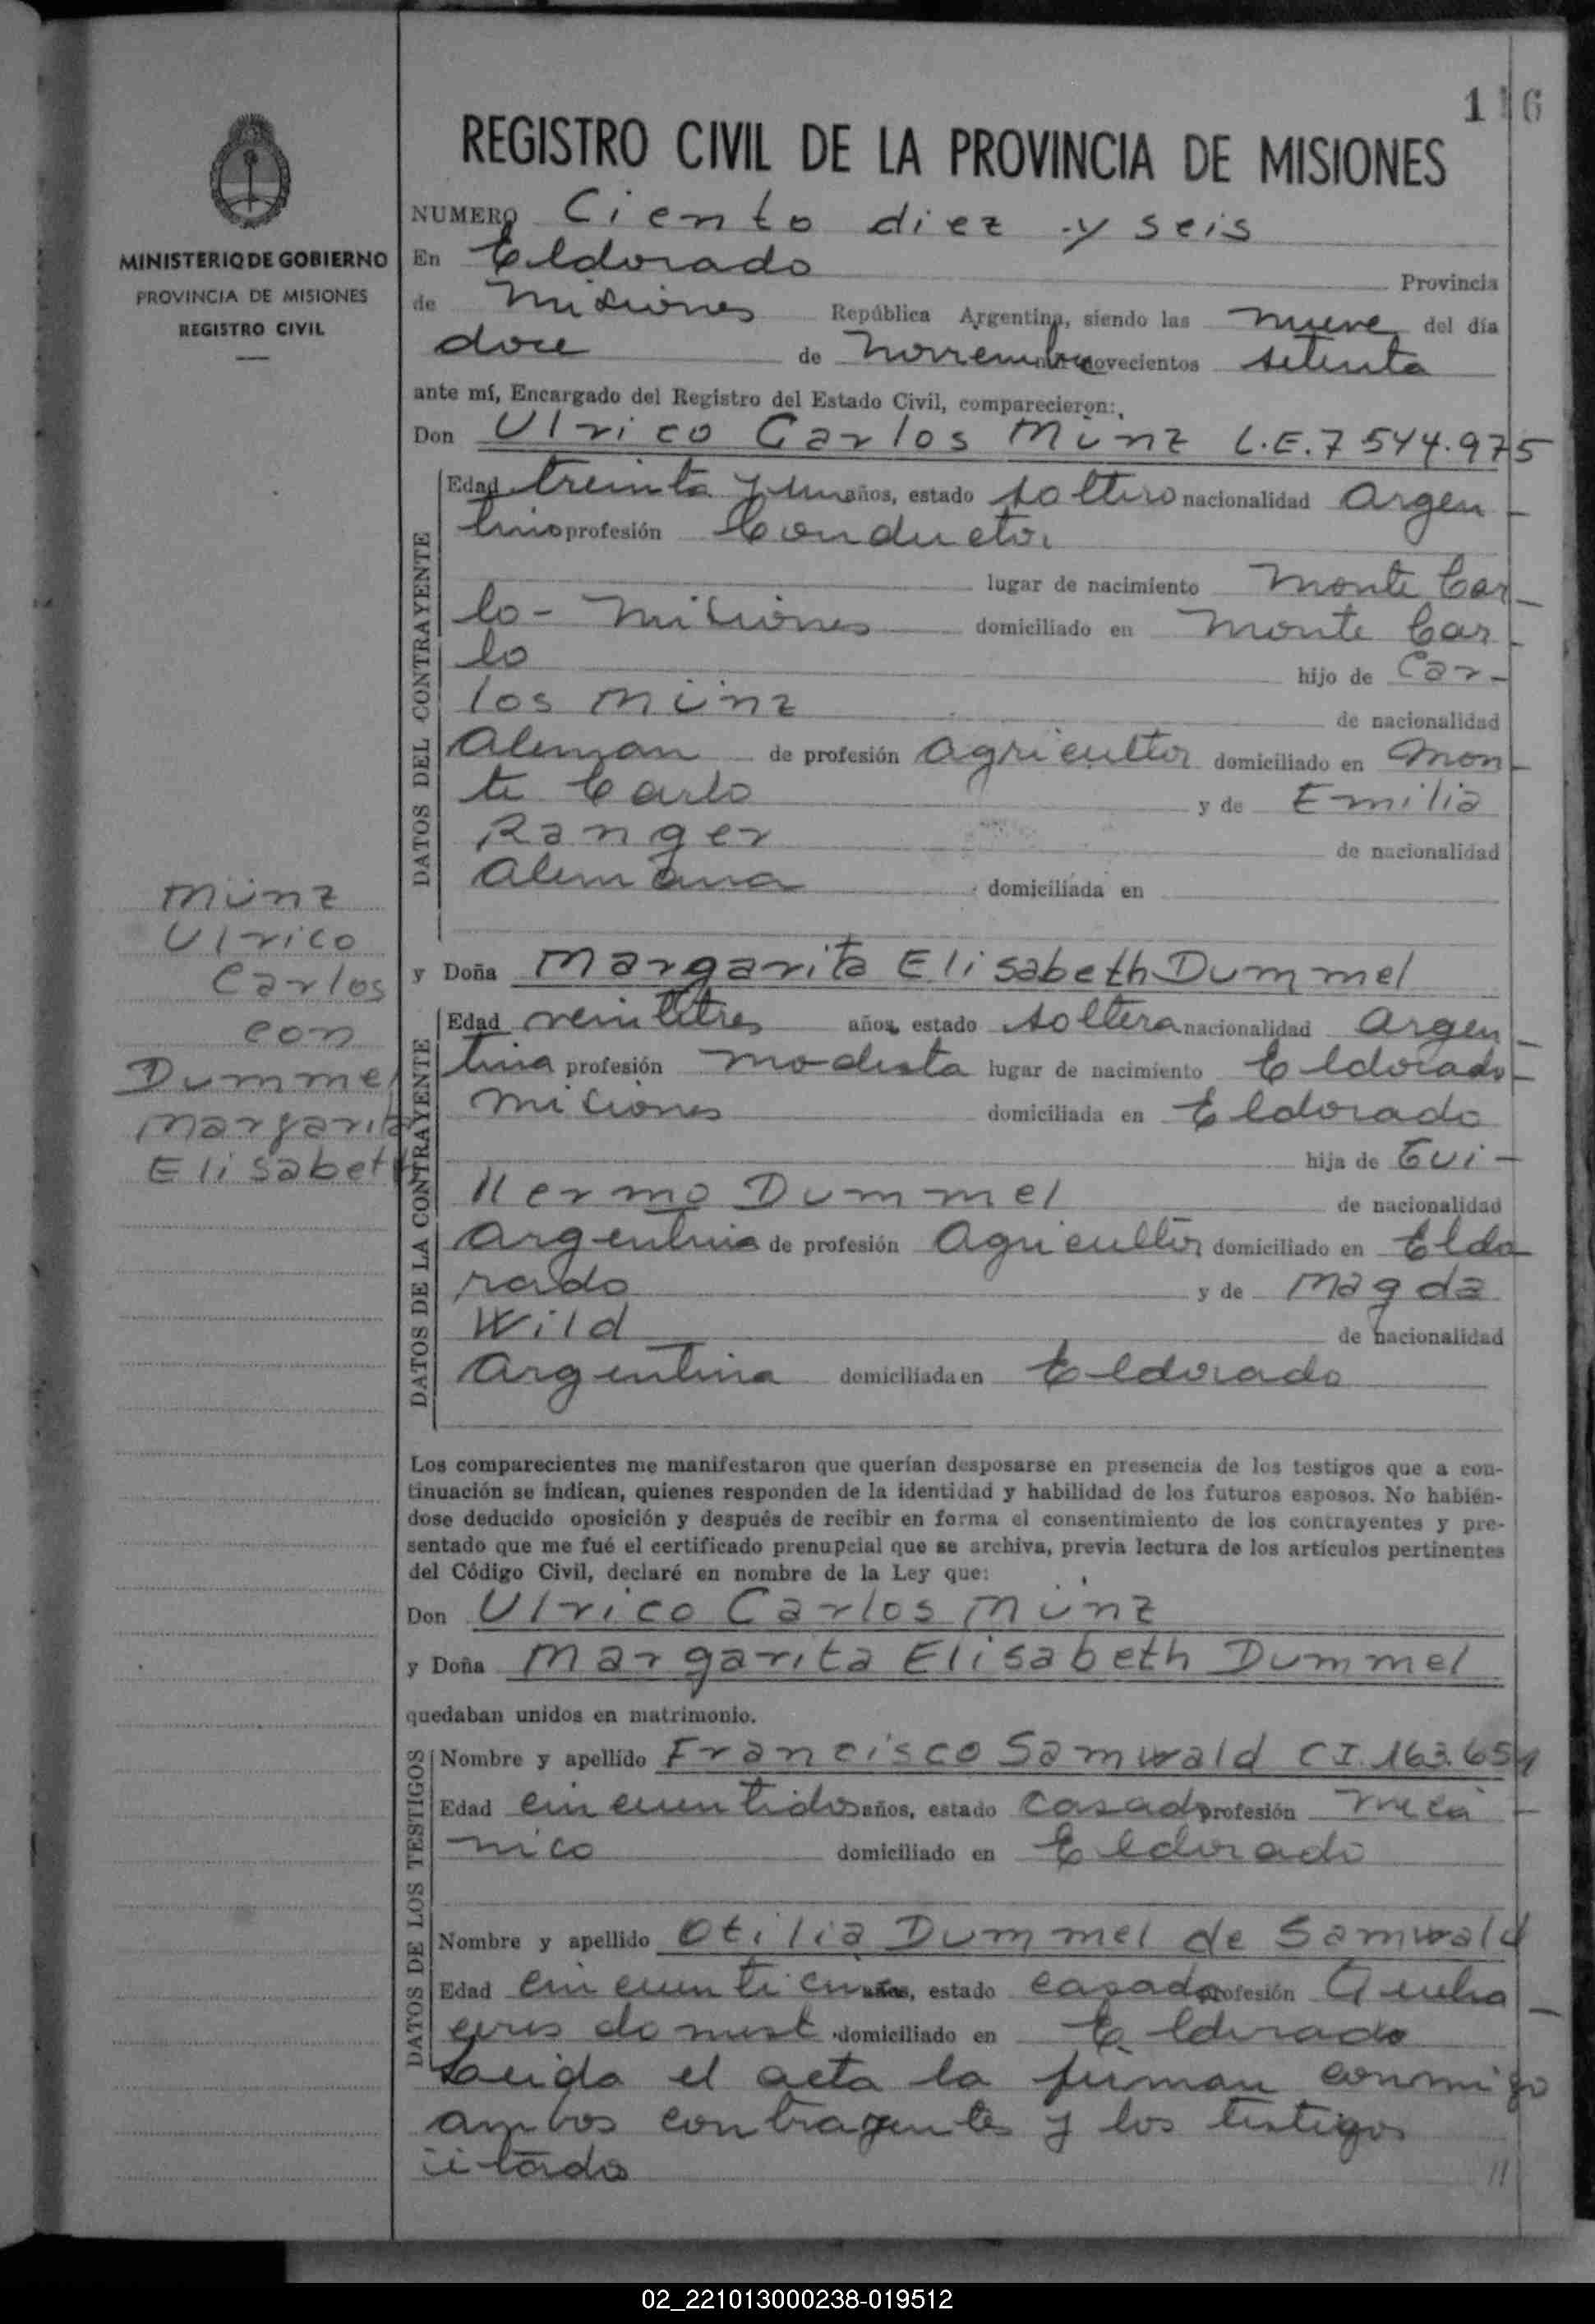 116
REGISTRO CIVIL DE LA PROVINCIA DE MISIONES
MINISTERIO DE GOBIERNO
PROVINCIA DE MISIONES
REGISTRO CIVIL
NUMERO Ciento diez y seis
En Eldorado Provincia
de Misiones República Argentina, siendo las nueve del día
doce de Noviembre novecientos setenta
ante mí, Encargado del Registro del Estado Civil, comparecieron:
Don Ulrico Carlos Münz L.E. 7544.975
DATOS DEL CONTRAYENTE
Edad treinta y un años, estado soltero nacionalidad Argen-
tino profesión Conductor
lugar de nacimiento Monte Car-
lo - Misiones domiciliado en Monte Car-
lo hijo de Car-
los Münz de nacionalidad
Aleman de profesión Agricultor domiciliado en Mon-
te Carlo y de Emilia
Ranger de nacionalidad
Alemana domiciliada en
Münz
Ulrico
Carlos
con
Dummel
Margarita
Elisabeth
y Doña Margarita Elisabeth Dummel
DATOS DE LA CONTRAYENTE
Edad veintitres años, estado soltera nacionalidad Argen-
tina profesión modista lugar de nacimiento Eldorado-
Misiones domiciliada en Eldorado
hija de Gui-
llermo Dummel de nacionalidad
Argentina de profesión Agricultor domiciliado en Eldo-
rado y de Magda
Wild de nacionalidad
Argentina domiciliada en Eldorado
Los comparecientes me manifestaron que querían desposarse en presencia de los testigos que a con-
tinuación se indican, quienes responden de la identidad y habilidad de los futuros esposos. No habién-
dose deducido oposición y después de recibir en forma el consentimiento de los contrayentes y pre-
sentado que me fué el certificado prenupcial que se archiva, previa lectura de los artículos pertinentes
del Código Civil, declaré en nombre de la Ley que:
Don Ulrico Carlos Münz
y Doña Margarita Elisabeth Dummel
quedaban unidos en matrimonio.
DATOS DE LOS TESTIGOS
Nombre y apellido Francisco Samwald C.I. 163.651
Edad cincuentidos años, estado casado profesión mecá-
nico domiciliado en Eldorado
Nombre y apellido Otilia Dummel de Samwald
Edad años, estado casada profesión Queha-
ceres domest. domiciliado en Eldorado
Leida el acta la firman conmigo
ambos contrayentes y los testigos
citados //
02_221013000238-019512